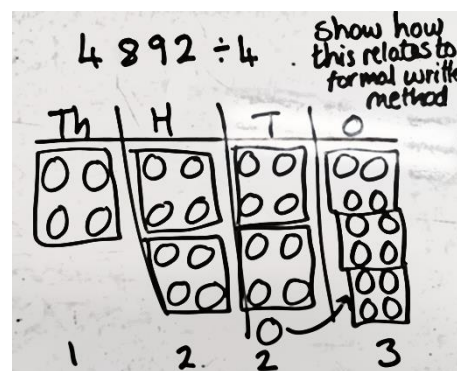 4892 ÷ 4
show how
this relates to
formal writte
method
Th H T O
1 2 2 3